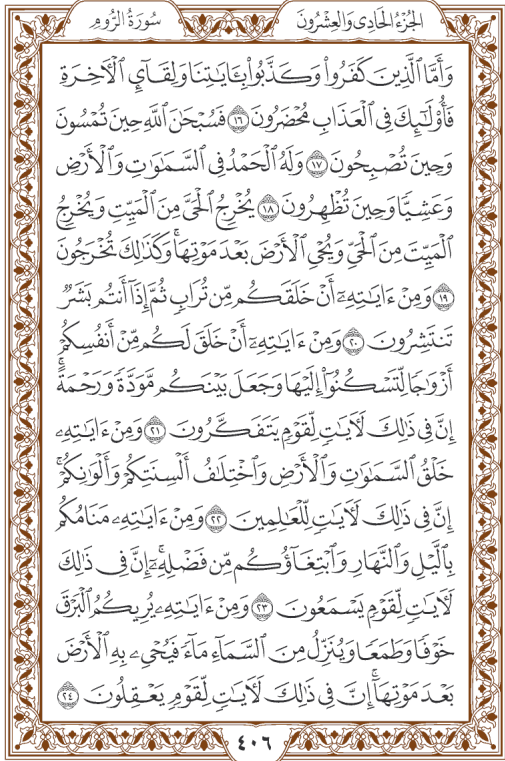 الجُزْءُ الحَادِى وَالعِشْرُونَ سُورَةُ الرُّومِ
وَأَمَّا ٱلَّذِينَ كَفَرُوا۟ وَكَذَّبُوا۟ بِـَٔايَـٰتِنَا وَلِقَآئِ ٱلْـَٔاخِرَةِ
فَأُو۟لَـٰٓئِكَ فِى ٱلْعَذَابِ مُحْضَرُونَ ١٦ فَسُبْحَـٰنَ ٱللَّهِ حِينَ تُمْسُونَ
وَحِينَ تُصْبِحُونَ ١٧ وَلَهُ ٱلْحَمْدُ فِى ٱلسَّمَـٰوَٰتِ وَٱلْأَرْضِ
وَعَشِيًّا وَحِينَ تُظْهِرُونَ ١٨ يُخْرِجُ ٱلْحَىَّ مِنَ ٱلْمَيِّتِ وَيُخْرِجُ
ٱلْمَيِّتَ مِنَ ٱلْحَىِّ وَيُحْىِ ٱلْأَرْضَ بَعْدَ مَوْتِهَا ۚ وَكَذَٰلِكَ تُخْرَجُونَ
١٩ وَمِنْ ءَايَـٰتِهِۦٓ أَنْ خَلَقَكُم مِّن تُرَابٍ ثُمَّ إِذَآ أَنتُم بَشَرٌ
تَنتَشِرُونَ ٢٠ وَمِنْ ءَايَـٰتِهِۦٓ أَنْ خَلَقَ لَكُم مِّنْ أَنفُسِكُمْ
أَزْوَٰجًا لِّتَسْكُنُوٓا۟ إِلَيْهَا وَجَعَلَ بَيْنَكُم مَّوَدَّةً وَرَحْمَةً ۚ
إِنَّ فِى ذَٰلِكَ لَـَٔايَـٰتٍ لِّقَوْمٍ يَتَفَكَّرُونَ ٢١ وَمِنْ ءَايَـٰتِهِۦ
خَلْقُ ٱلسَّمَـٰوَٰتِ وَٱلْأَرْضِ وَٱخْتِلَـٰفُ أَلْسِنَتِكُمْ وَأَلْوَٰنِكُمْ ۚ
إِنَّ فِى ذَٰلِكَ لَـَٔايَـٰتٍ لِّلْعَـٰلِمِينَ ٢٢ وَمِنْ ءَايَـٰتِهِۦ مَنَامُكُم
بِٱلَّيْلِ وَٱلنَّهَارِ وَٱبْتِغَآؤُكُم مِّن فَضْلِهِۦٓ ۚ إِنَّ فِى ذَٰلِكَ
لَـَٔايَـٰتٍ لِّقَوْمٍ يَسْمَعُونَ ٢٣ وَمِنْ ءَايَـٰتِهِۦ يُرِيكُمُ ٱلْبَرْقَ
خَوْفًا وَطَمَعًا وَيُنَزِّلُ مِنَ ٱلسَّمَآءِ مَآءً فَيُحْىِۦ بِهِ ٱلْأَرْضَ
بَعْدَ مَوْتِهَآ ۚ إِنَّ فِى ذَٰلِكَ لَـَٔايَـٰتٍ لِّقَوْمٍ يَعْقِلُونَ ٢٤
٤٠٦